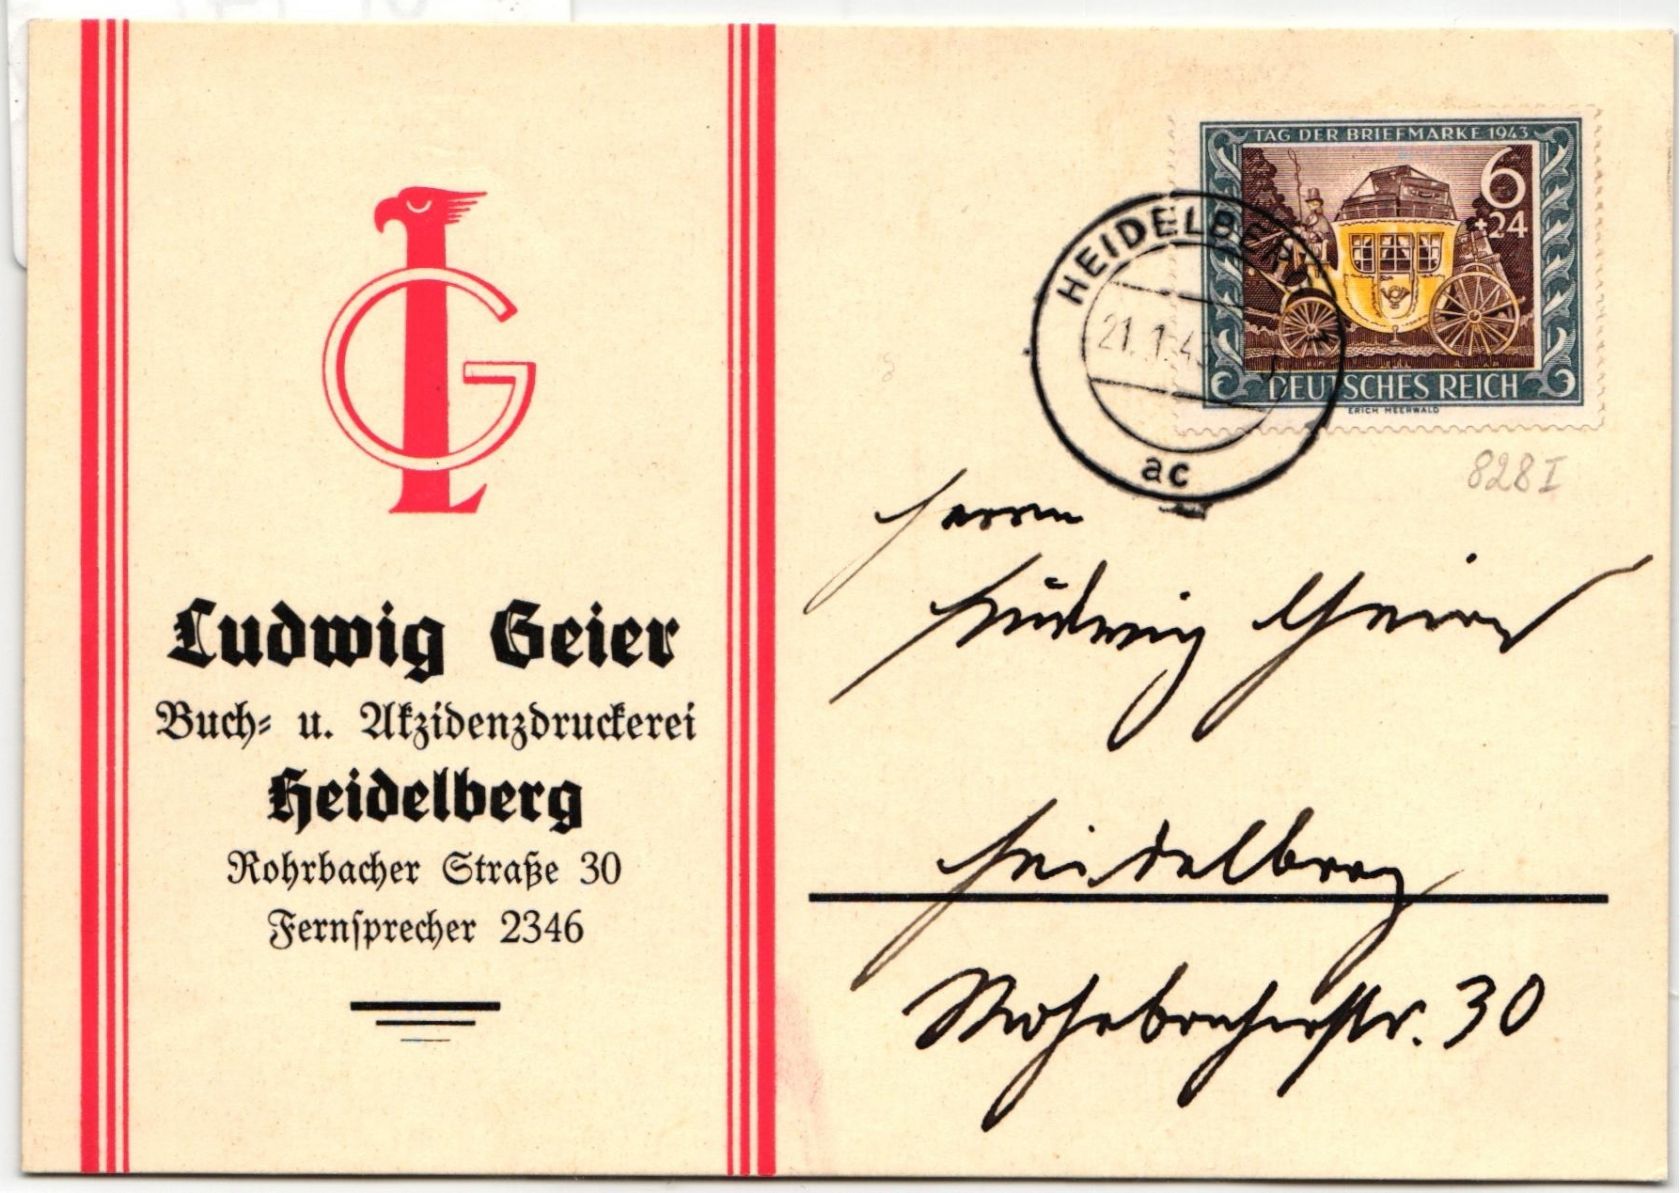 LG
Ludwig Geier
Buch- u. Akzidenzdruckerei
Heidelberg
Rohrbacher Straße 30
Fernsprecher 2346
TAG DER BRIEFMARKE 1943
6
+24
DEUTSCHES REICH
ERICH MEERWALD
HEIDELBERG
21. 1. 4
ac
828 I
Herrn
Ludwig Geier
Heidelberg
Rohrbacherstr. 30